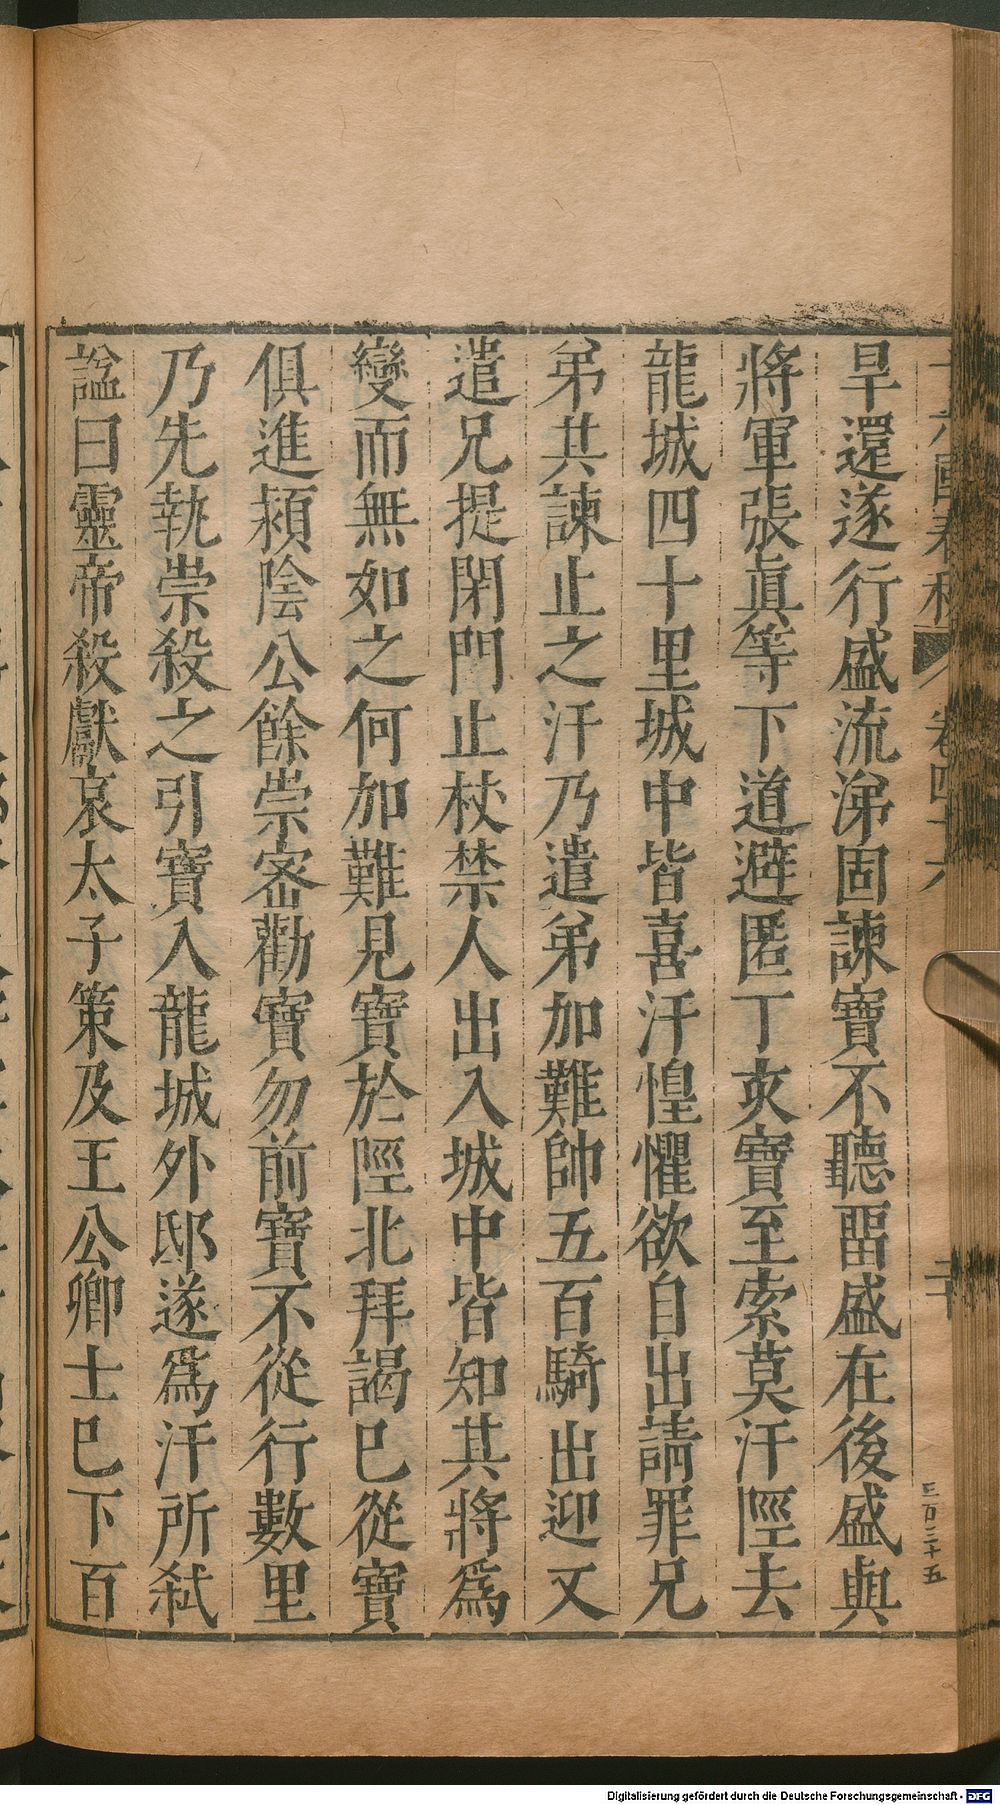 旱還遂行盛流涕固諫寶不聽畱盛在後盛與
將軍張眞等下道避匿丁亥寶至索莫汗陘去
龍城四十里城中皆喜汗惶懼欲自出請罪兄
弟共諫止之汗乃遣弟加難帥五百騎出迎又
遣兄提閉門止杖禁人出入城中皆知其將爲
變而無如之何加難見寶於陘北拜謁已從寶
俱進潁陰公餘崇密勸寶勿前寶不從行數里
乃先執崇殺之引寶入龍城外邸遂爲汗所弒
諡曰靈帝殺獻哀太子策及王公卿士已下百
二十
三百三十五
Digitalisierung gefördert durch die Deutsche Forschungsgemeinschaft - DFG